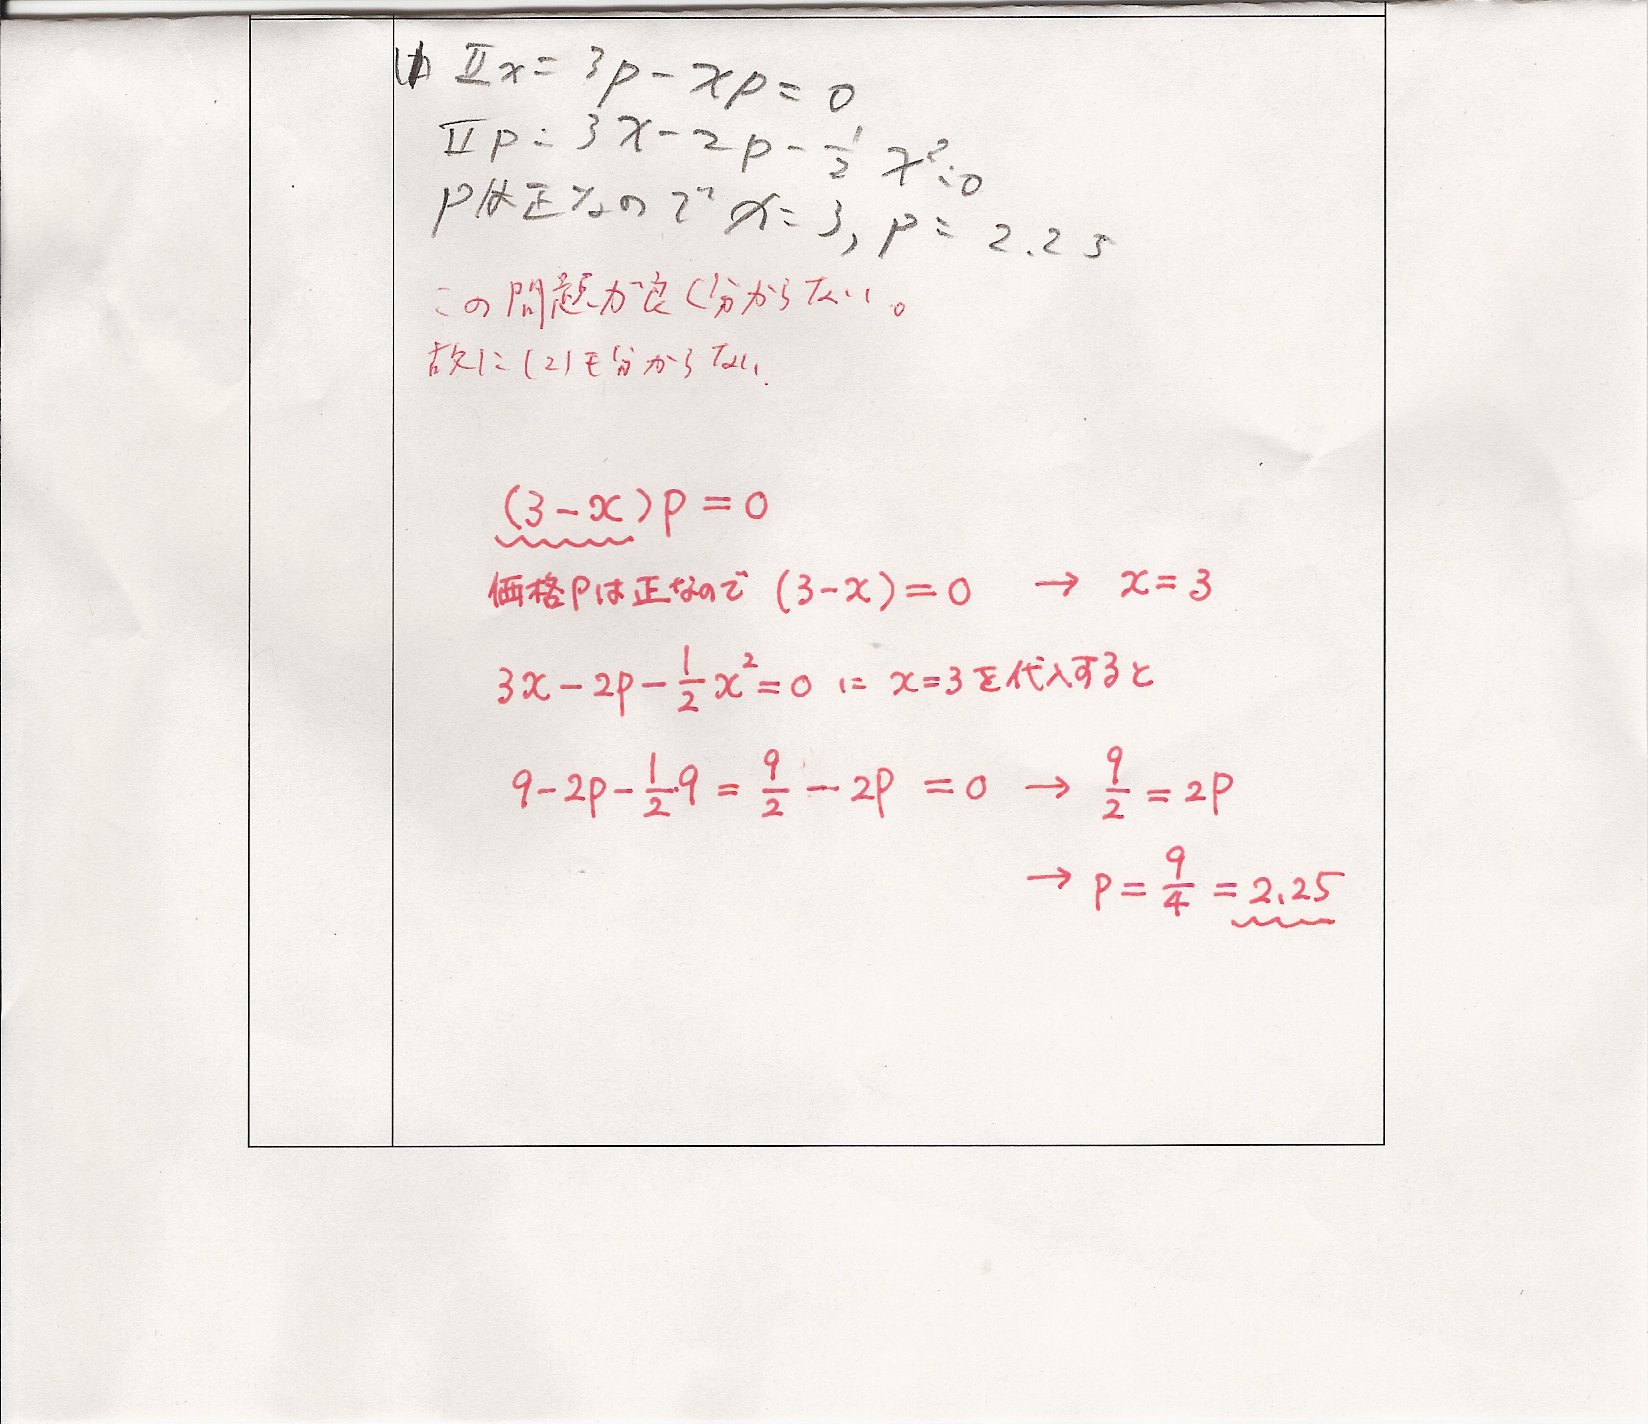 (1) Πx = 3p - xp = 0
Πp = 3x - 2p - 1/2 x² = 0
pは正なので x = 3, p = 2.25
この問題が良く分からない。
故に(2)も分からない.
(3-x)p = 0
価格pは正なので (3-x) = 0 → x = 3
3x - 2p - 1/2 x² = 0 に x=3を代入すると
9 - 2p - 1/2・9 = 9/2 - 2p = 0 → 9/2 = 2p
→ p = 9/4 = 2.25